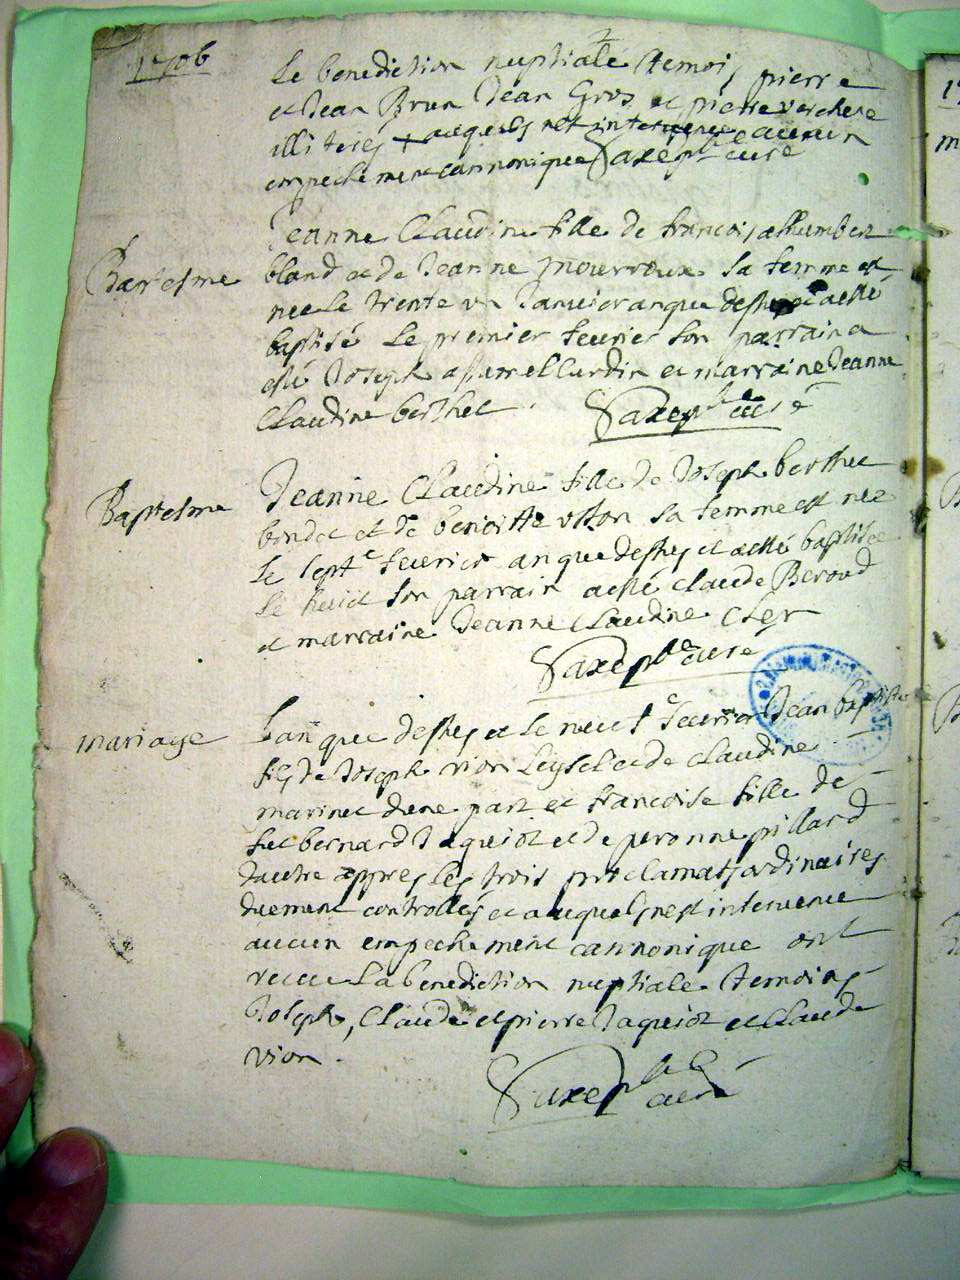 1706
Le benediction nuptiale temoi pierre
et Jean Brun Jean Gros et pierre verchere
illiterés + auquels nest intervenue aucun
empechement cannonique curé
Jeanne Claudine fille de francois alhumbert
Baptesme
bland et de Jeanne mourroux sa femme est
nee le trente un Janvier an que desus et a esté
baptisé le premier fevrier son parrain a
esté Joseph et marraine Jeanne
Claudine berthet curé
Baptesme
Jeanne Claudine fille de Joseph berthet
bondet et de benoitte sa femme est nee
le sept.e fevrier an que desus et a esté baptisée
le huict son parrain a esté claude Beroud
et marraine Jeanne Claudine Cler
curé
mariage
Lan que desus et le neuf.e fevrier Jean baptiste
fils de Joseph vion et de claudine
marinet dune part et francoise fille de
feu bernard Jaquiot et de peronne pillard
dautre appres les trois proclamat. ordinaires
duement controllés et auquels nest intervenue
aucun empechement cannonique ont
receu La benediction nuptiale temoins
Joseph, Claude et pierre Jaquiot et Claude
vion.
curé